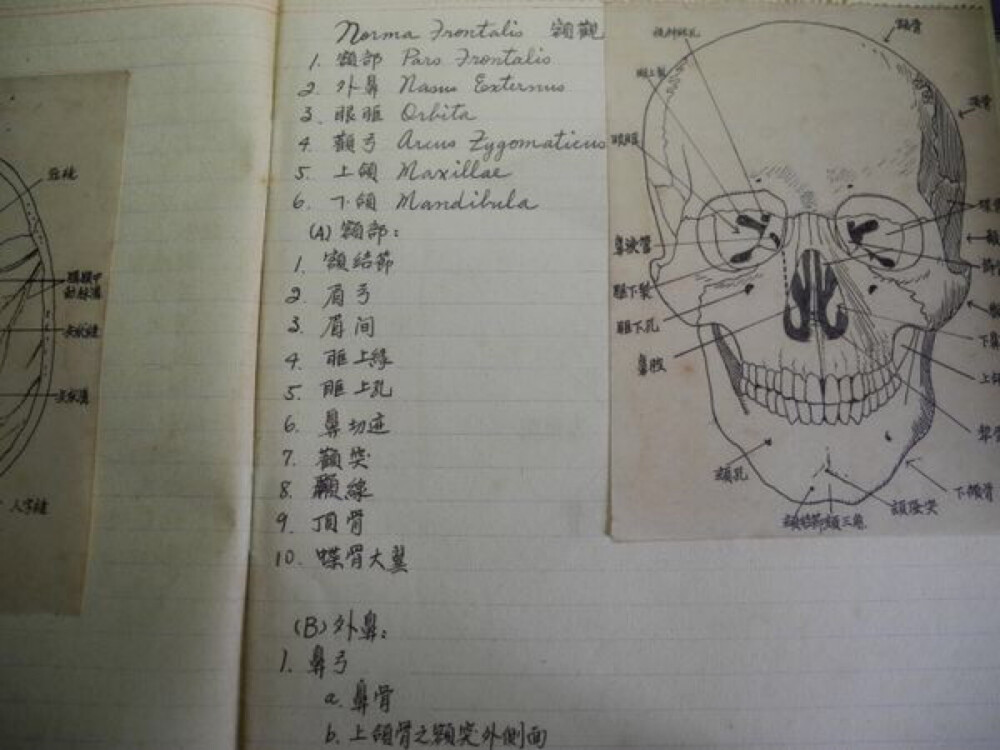 Norma Frontalis 額觀
1. 額部 Pars Frontalis
2. 外鼻 Nasus Externus
3. 眼眶 Orbita
4. 顴弓 Arcus Zygomaticus
5. 上頜 Maxillae
6. 下頜 Mandibula
(A) 額部:
1. 額結節
2. 眉弓
3. 眉间
4. 眶上緣
5. 眶上孔
6. 鼻切迹
7. 顴突
8. 顳線
9. 頂骨
10. 蝶骨大翼
(B) 外鼻:
1. 鼻弓
a. 鼻骨
b. 上頜骨之額突外側面
人字縫
視神經孔
眶上裂
鼻淚管
眶下裂
眶下孔
鼻腔
頦孔
頦結節
頦三角
頦隆突
下頜骨